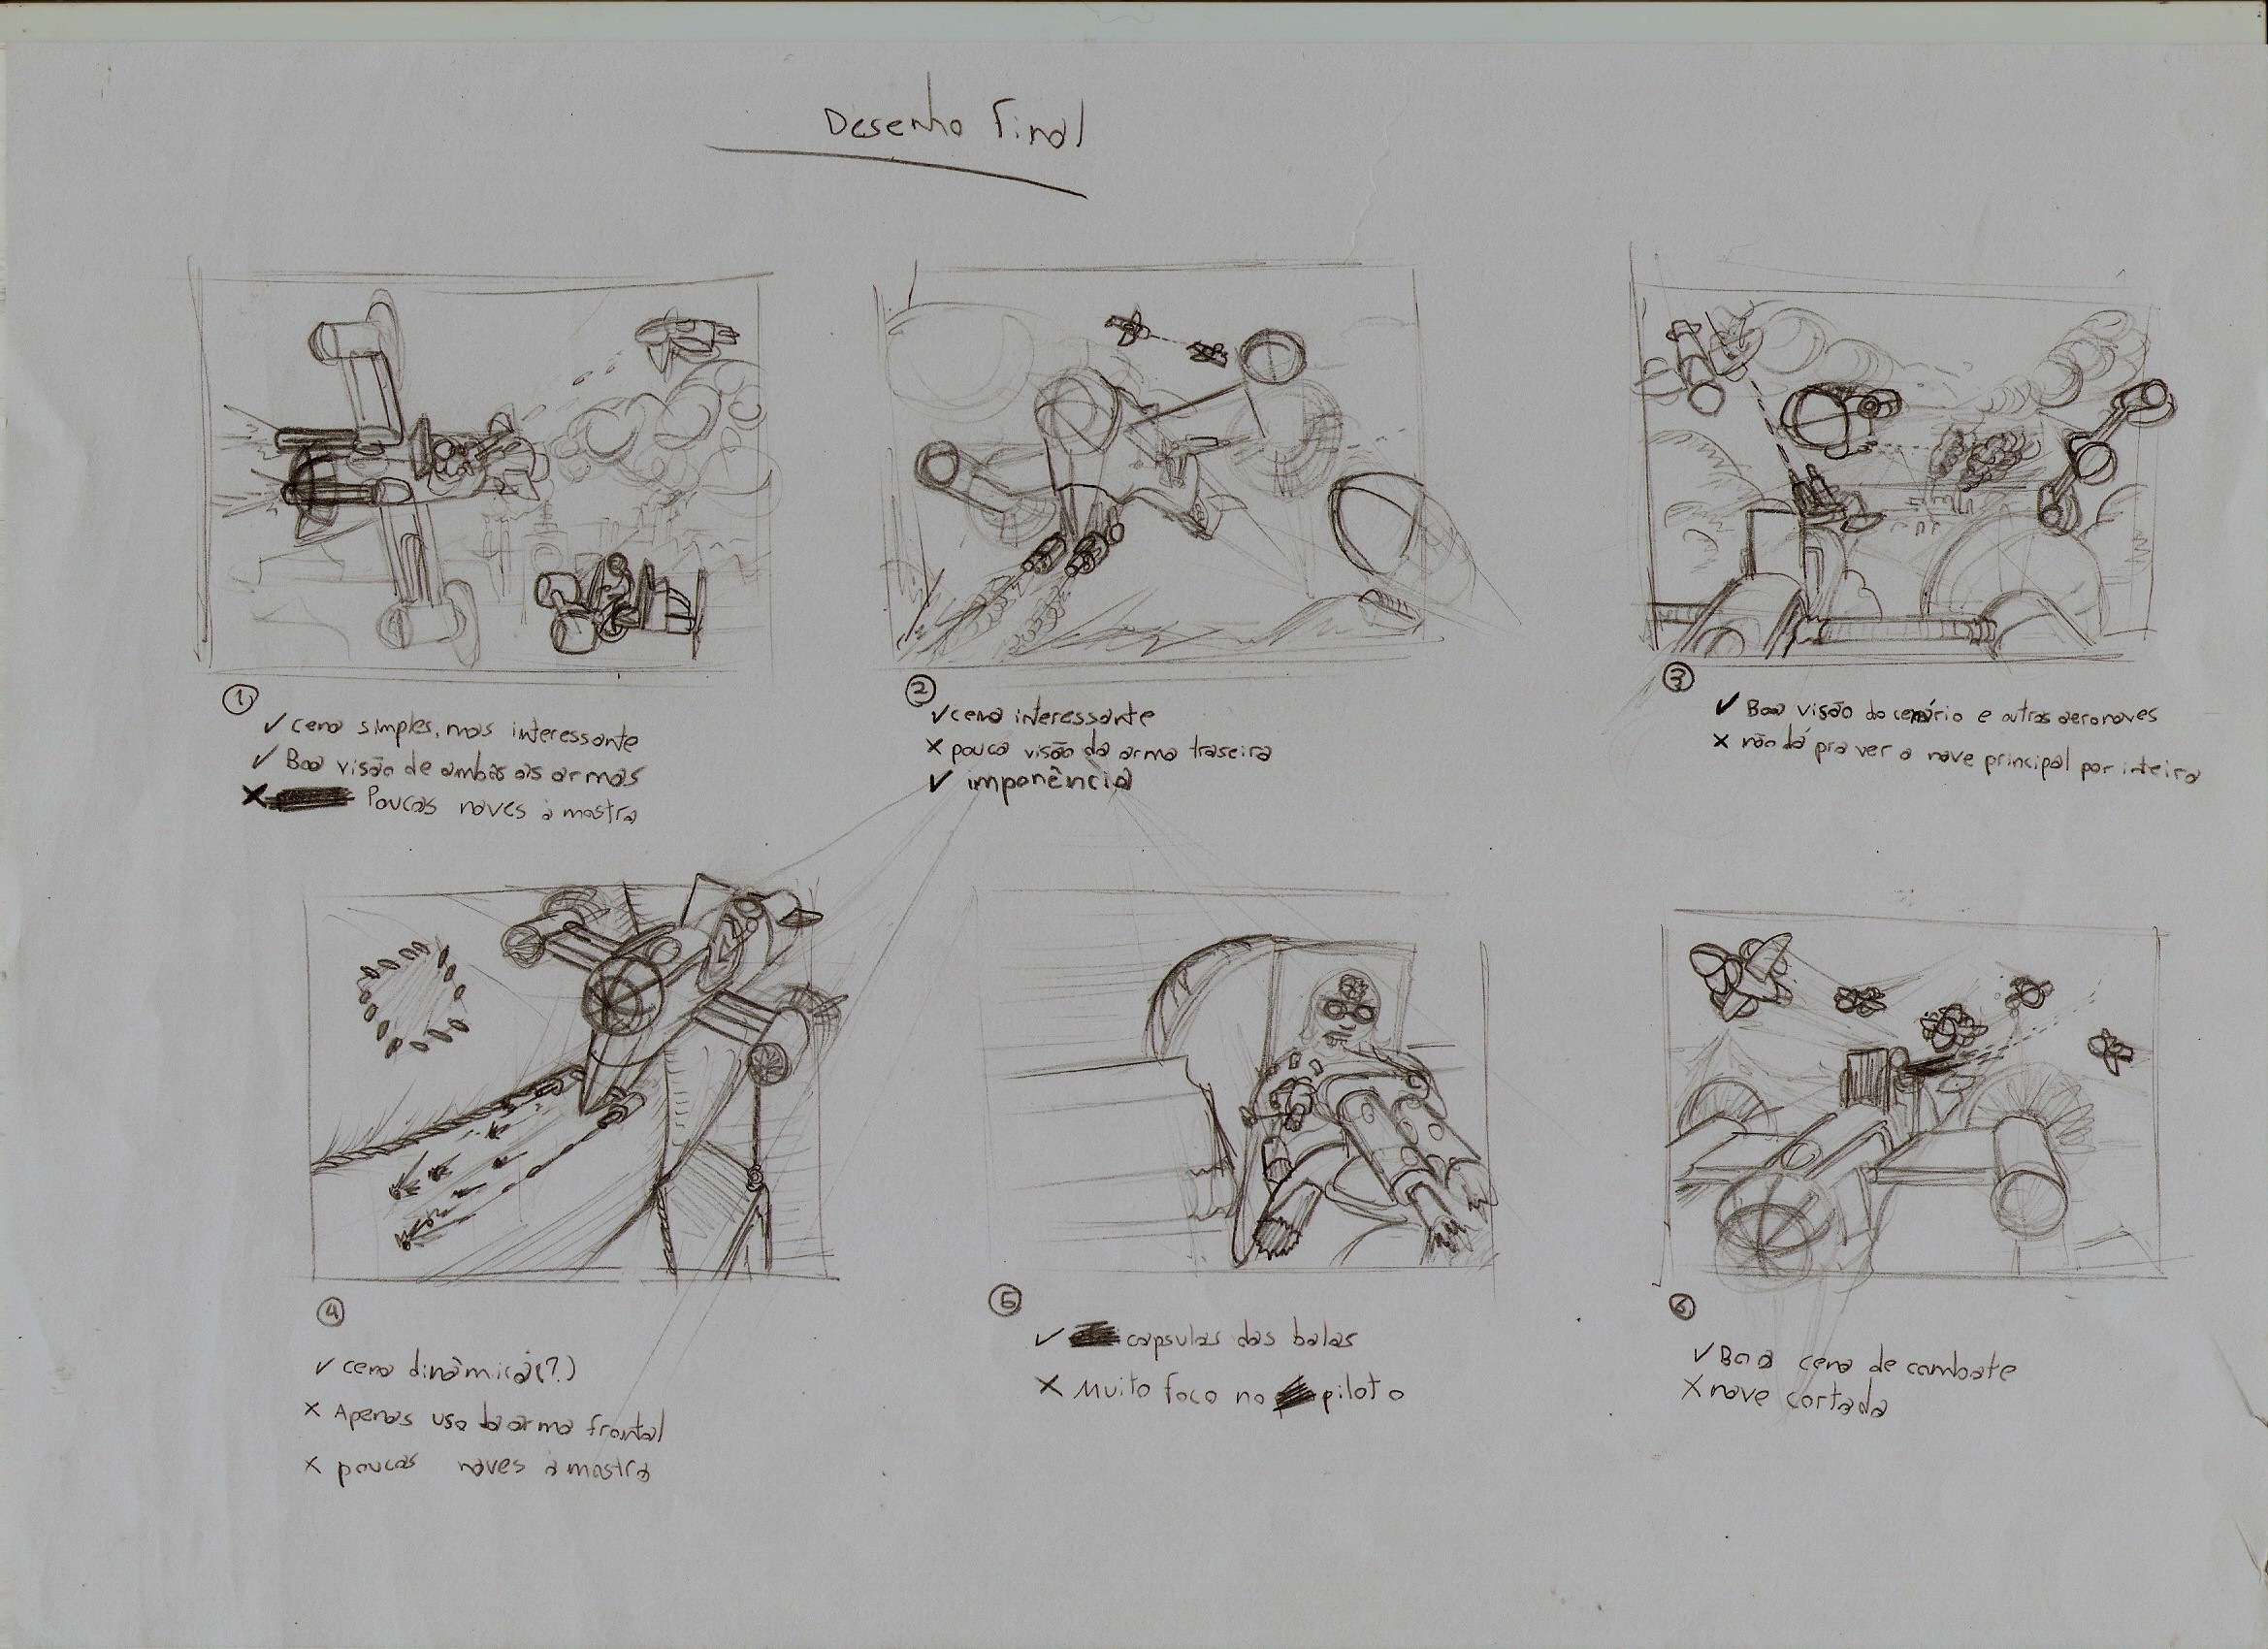 Desenho Final
1
✓ cena simples, mas interessante
✓ Boa visão de ambas as armas
X Poucas naves à mostra
2
✓ cena interessante
X pouca visão da arma traseira
✓ imponência
3
✓ Boa visão do cenário e outras aeronaves
X não dá pra ver a nave principal por inteira
4
✓ cena dinâmica(?)
X Apenas uso da arma frontal
X poucas naves à mostra
5
✓ capsulas das balas
X Muito foco no piloto
6
✓ Boa cena de combate
X nave cortada